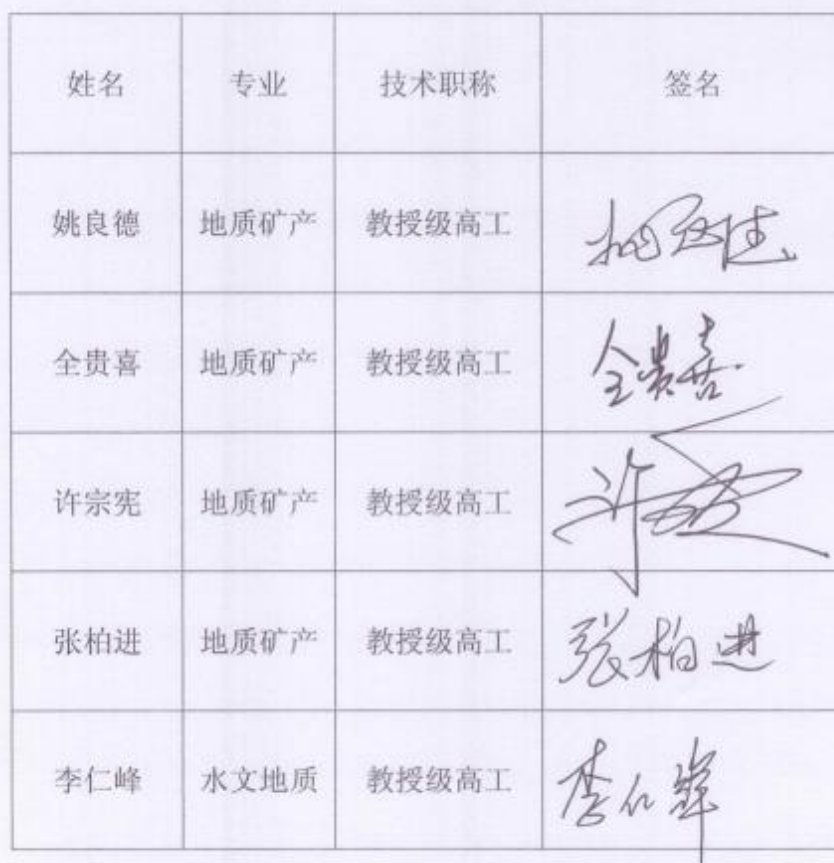 姓名 专业 技术职称 签名
姚良德 地质矿产 教授级高工 姚良德
全贵喜 地质矿产 教授级高工 全贵喜
许宗宪 地质矿产 教授级高工 许宗宪
张柏进 地质矿产 教授级高工 张柏进
李仁峰 水文地质 教授级高工 李仁峰